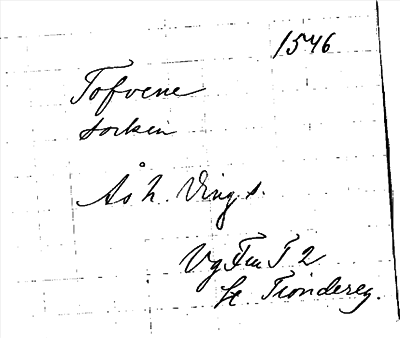 1546
Tofvene
socken
Ås h. Vings.
Vg Fm T 2
fr. Tiondereg.